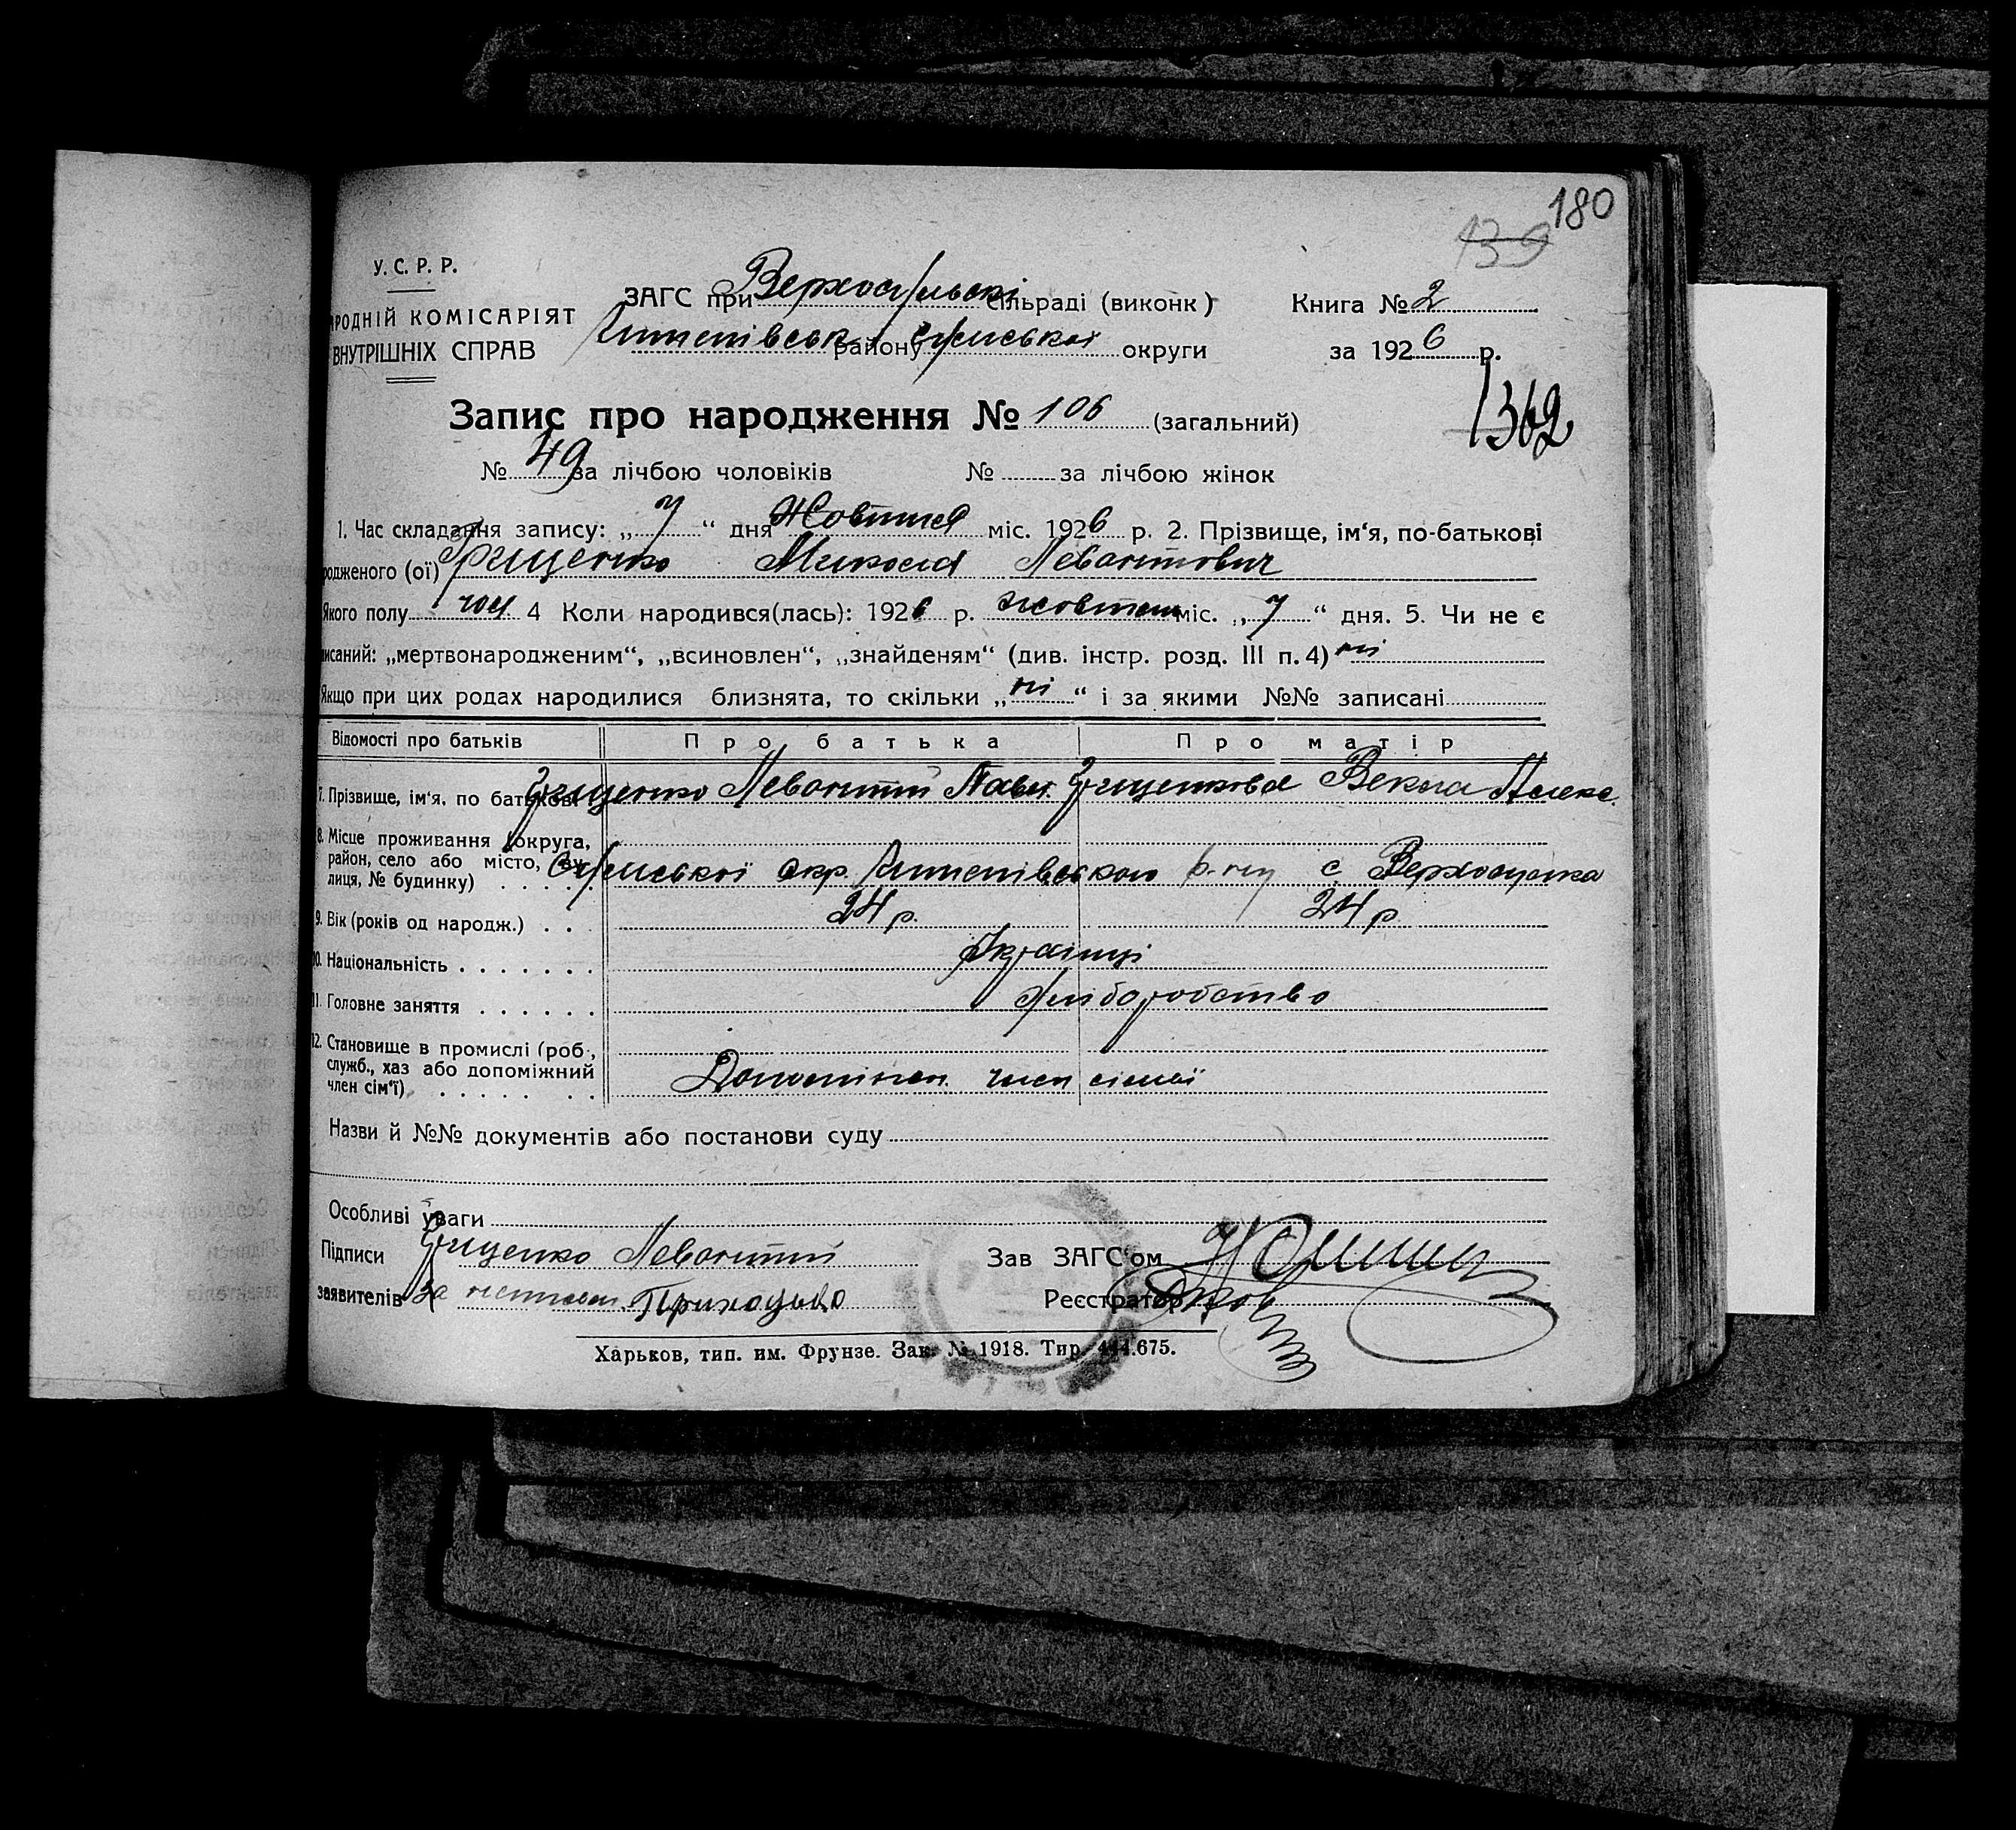 180
139
У. С. Р. Р.
НАРОДНІЙ КОМІСАРІЯТ
ВНУТРІШНІХ СПРАВ
ЗАГС при Верхосульскі сільраді (виконк)
Книга № 2
району Сумської округи
за 1926 р.
1362
Запис про народження № 106 (загальний)
№ 49 за лічбою чоловіків № за лічбою жінок
1. Час складання запису: „ 7 “ дня Жовтня міс. 1926 р. 2. Прізвище, ім‘я, по-батькові
родженого (ої) Грищенко Микола Левонтович
Якого полу чол 4 Коли народився(лась): 1926 р. жовтня міс. „ 7 “ дня. 5. Чи не є
писаний: „мертвонародженим“, „всиновлен“, „знайденям“ (див. інстр. розд. III п. 4) ні
Якщо при цих родах народилися близнята, то скільки „ ні “ і за якими №№ записані
Відомості про батьків Про батька Про матір
7. Прізвище, ім‘я, по батькові Грищенко Левонтій Павл. Грищенкова Векла Алекс.
8. Місце проживання (округа,
район, село або місто, ву-
лиця, № будинку) Сумської окр. р-ну с. Верхосулка
9. Вік (років од народж.) 24 р. 24 р
10. Національність Украінці
11. Головне заняття Хліборобство
12. Становище в промислі (роб.,
служб., хаз або допоміжний
член сім‘ї) член сімьї
Назви й №№ документів або постанови суду
Особливі уваги
Підписи Грищенко Левонтий
Зав ЗАГС‘ом
заявителів За Приходько
Реєстратор
Харьков, тип. им. Фрунзе. Зак. № 1918. Тир. 444.675.